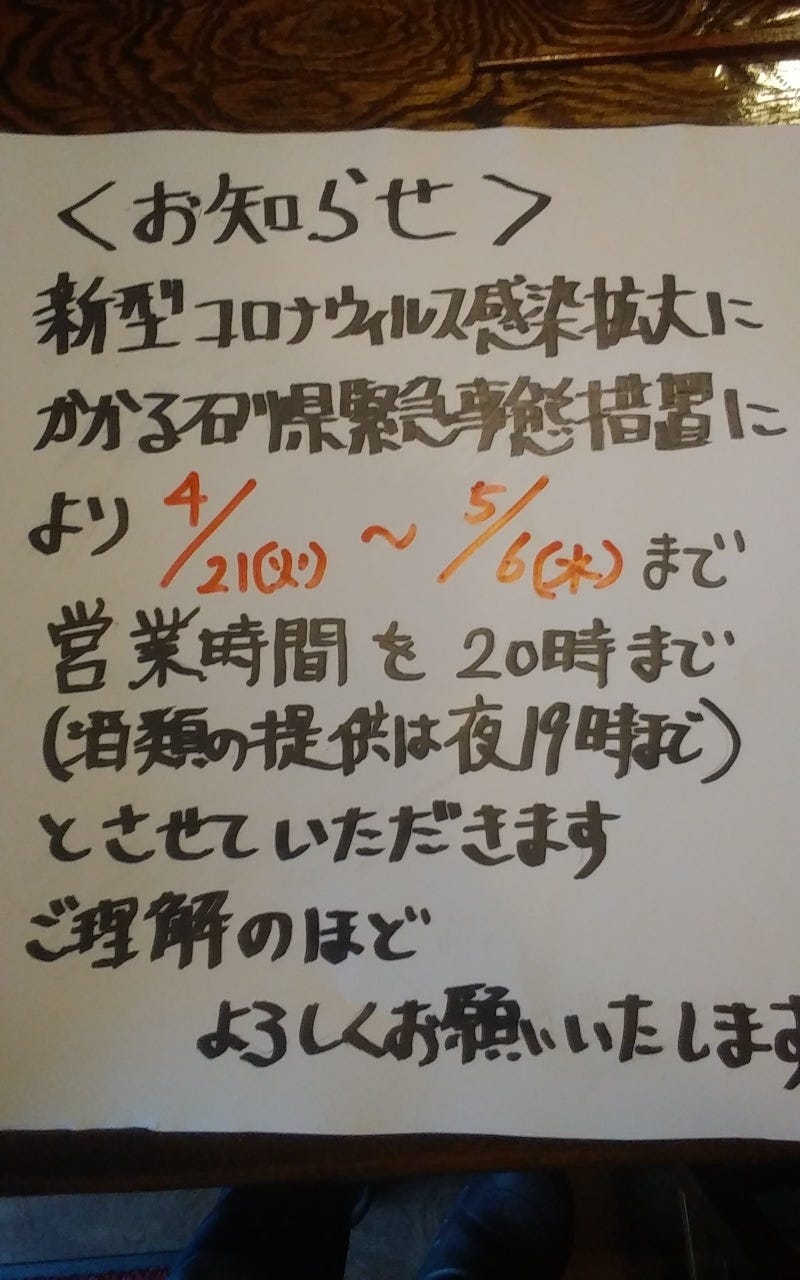 <お知らせ>
新型コロナウィルス感染拡大に
かかる石川県緊急事態措置に
より 4/21(火) ~ 5/6(水) まで
営業時間を20時まで
(酒類の提供は夜19時まで)
とさせていただきます
ご理解のほど
よろしくお願いいたします